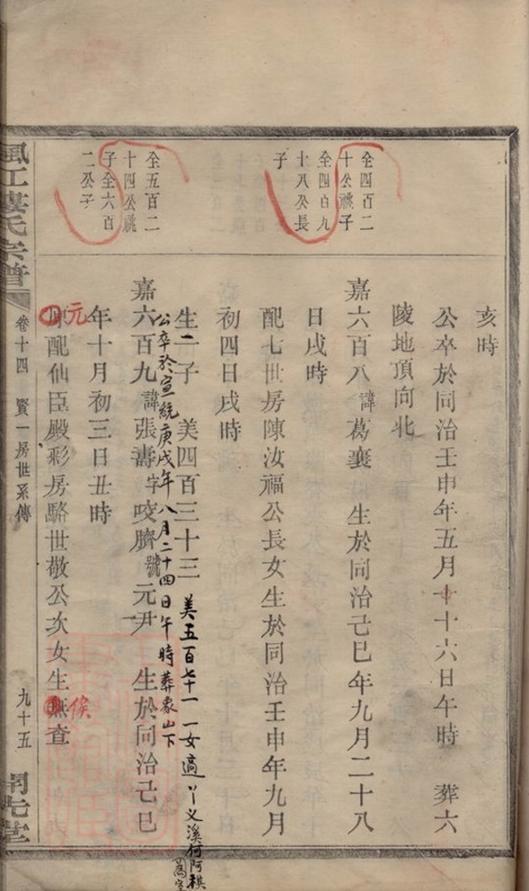 全四百二
十公祧子
全四百九
十八公長
子
全五百二
十四公祧
子全六百
二公子
亥時
公卒於同治壬申年五月十六日午時 葬六
陵地頂向北
嘉六百八諱葛襄 生於同治己巳年九月二十八
日戌時
配七世房陳汝福公長女生於同治壬申年九月
初四日戌時
生二子 美四百三十三 美五百七十一 一女適丫义溪何阿棋
公卒於宣統庚戌年八月二十四日午時葬象山下
嘉六百九諱張壽字咬臍號元尹 生於同治己巳
年十月初三日丑時
元
配仙臣殿彩房駱世敬公次女生無查
俟
楓工樓氏宗譜
卷十四 賢一房世系傳
九十五